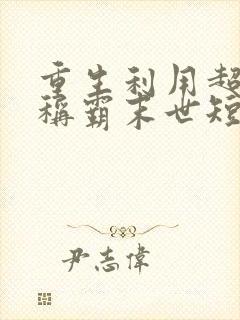 重生利用超
稱霸末世短
尹志偉